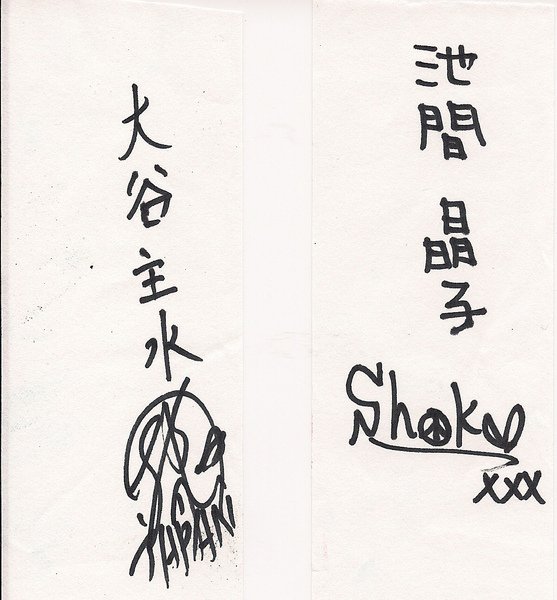 大谷主水
JAPAN
池間
晶子
Shoko
xxx